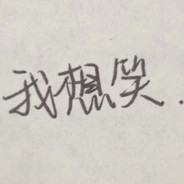 我想笑.